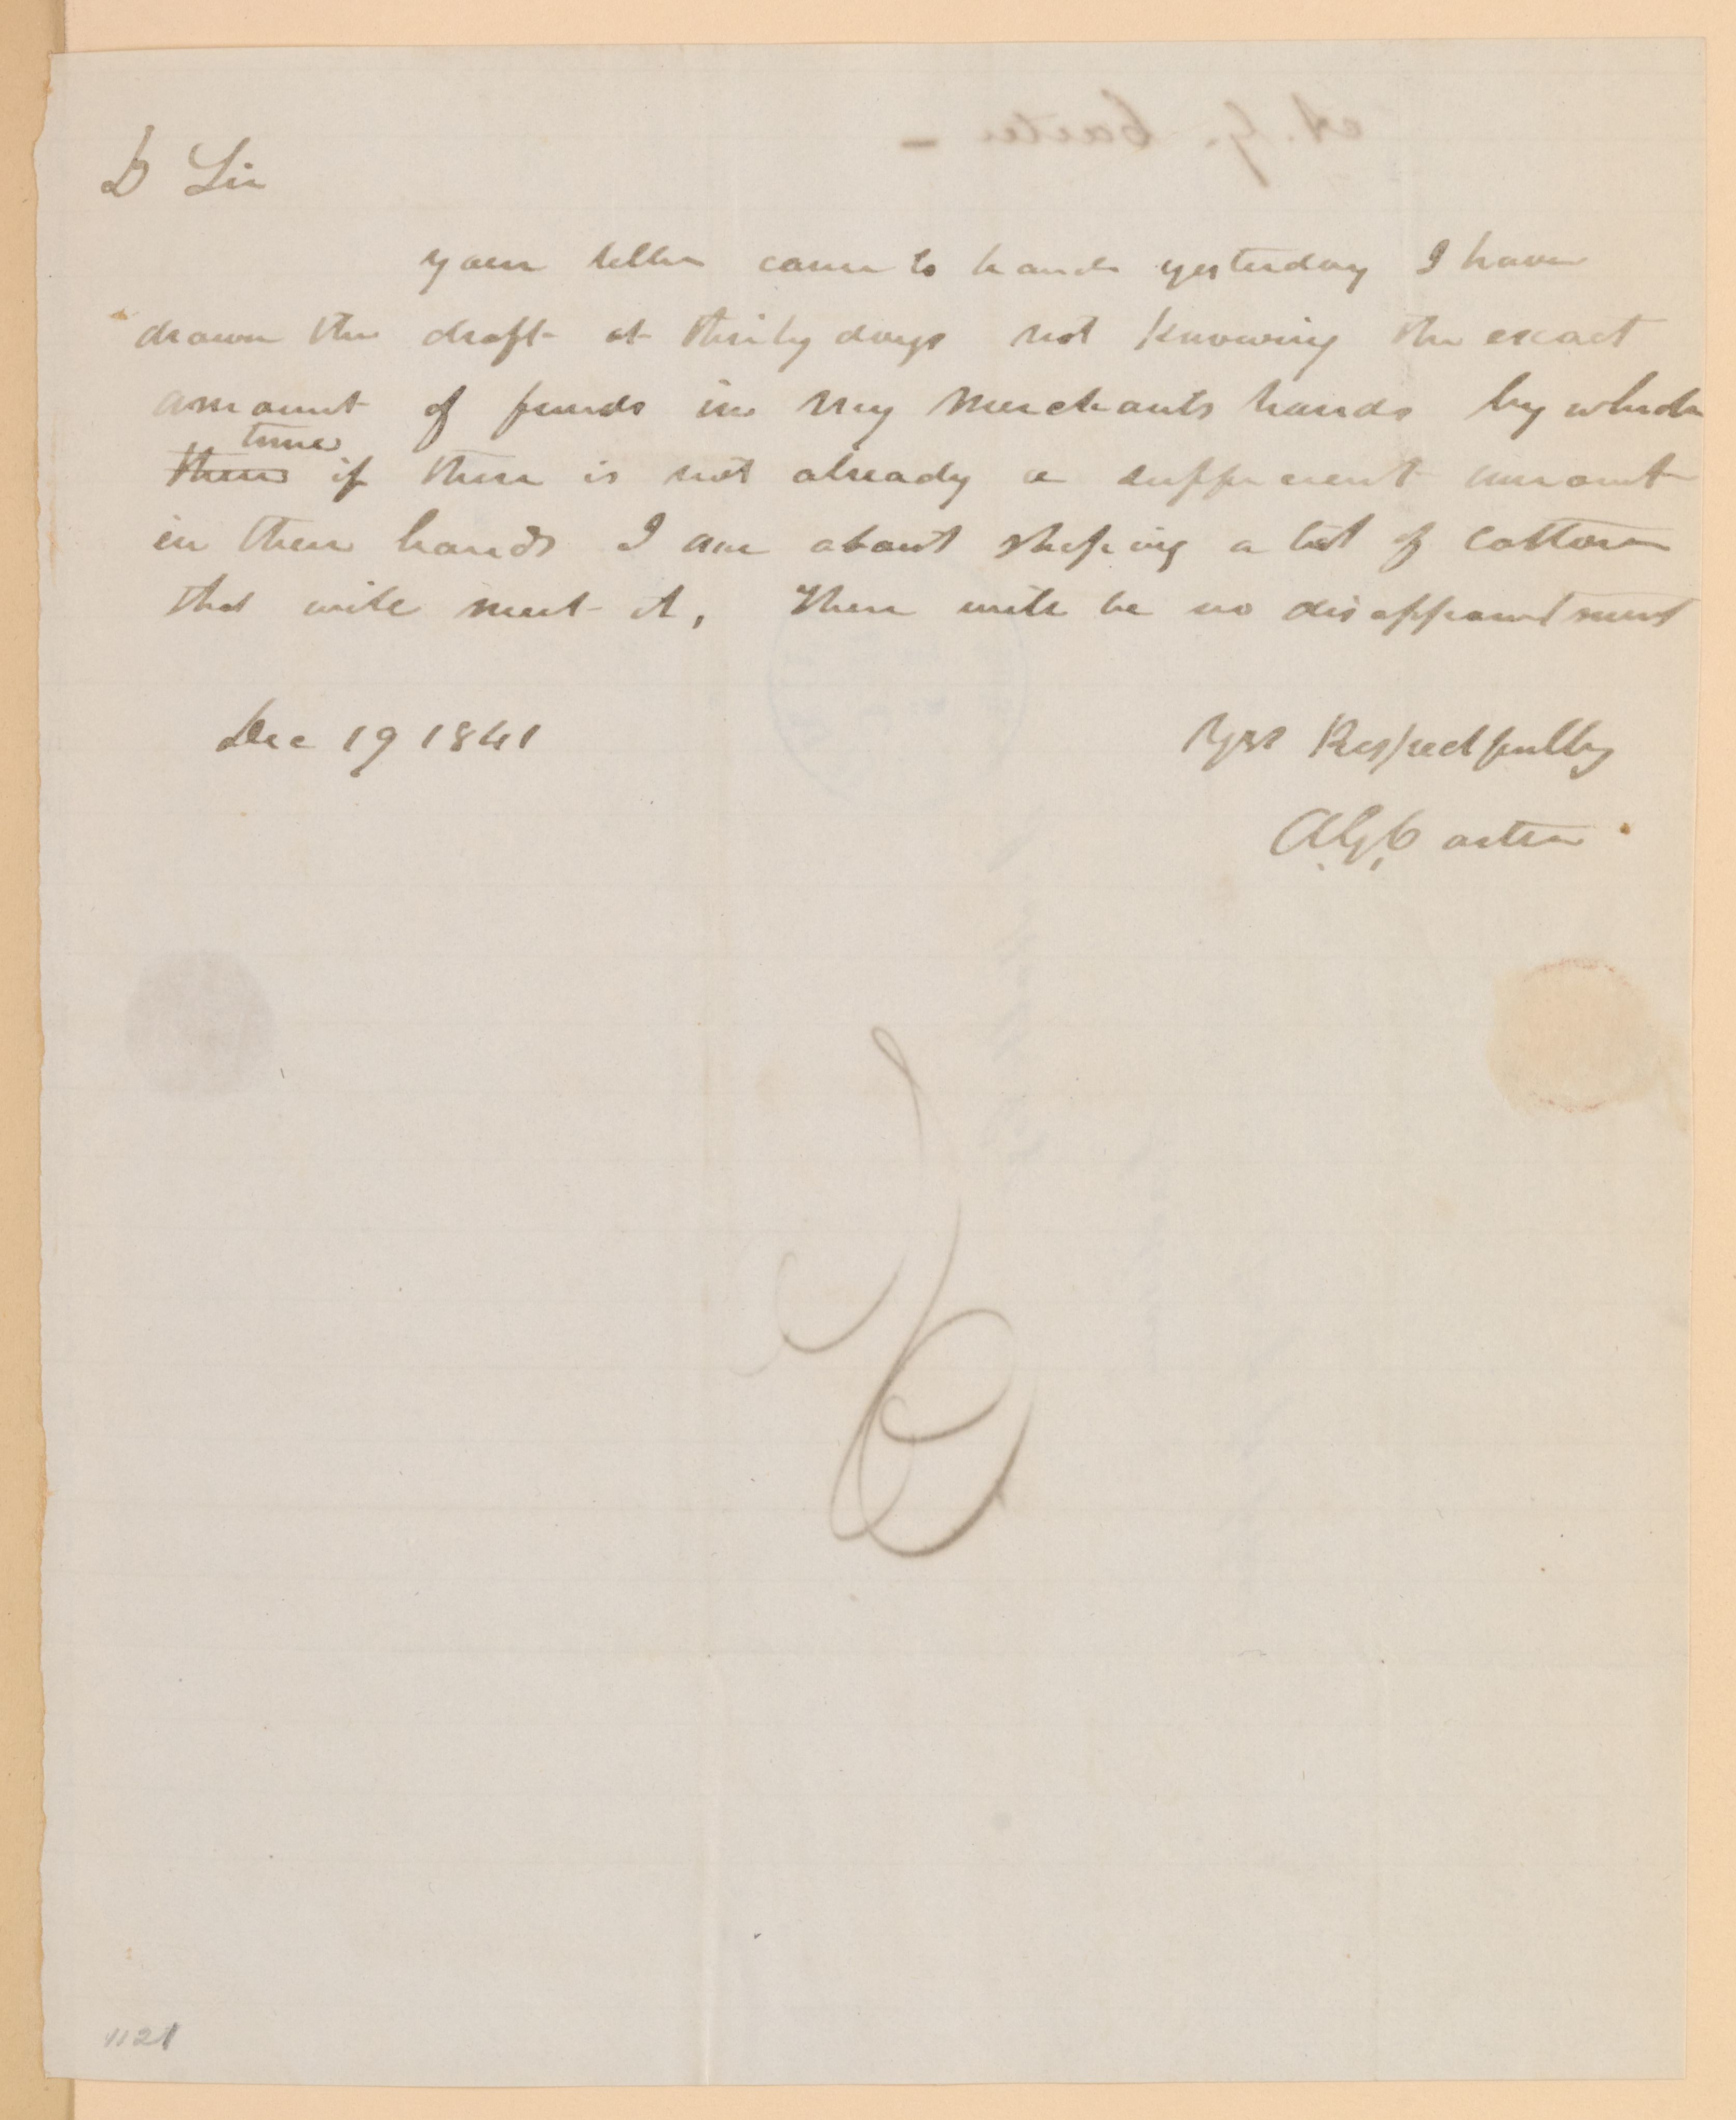 D Sir
your letter came to hand yesterday I have
drawn the draft at thirty days not knowing the exact
amount of funds in my merchants hands by which
time
there if there is not already a sufficient amount
in their hands I am about shiping a lot of cotton
that will meet it, There will be no disappointment
Dec 19 1841
Yrs Respectfully
A.G. Carter
A. G. Carter —
1121